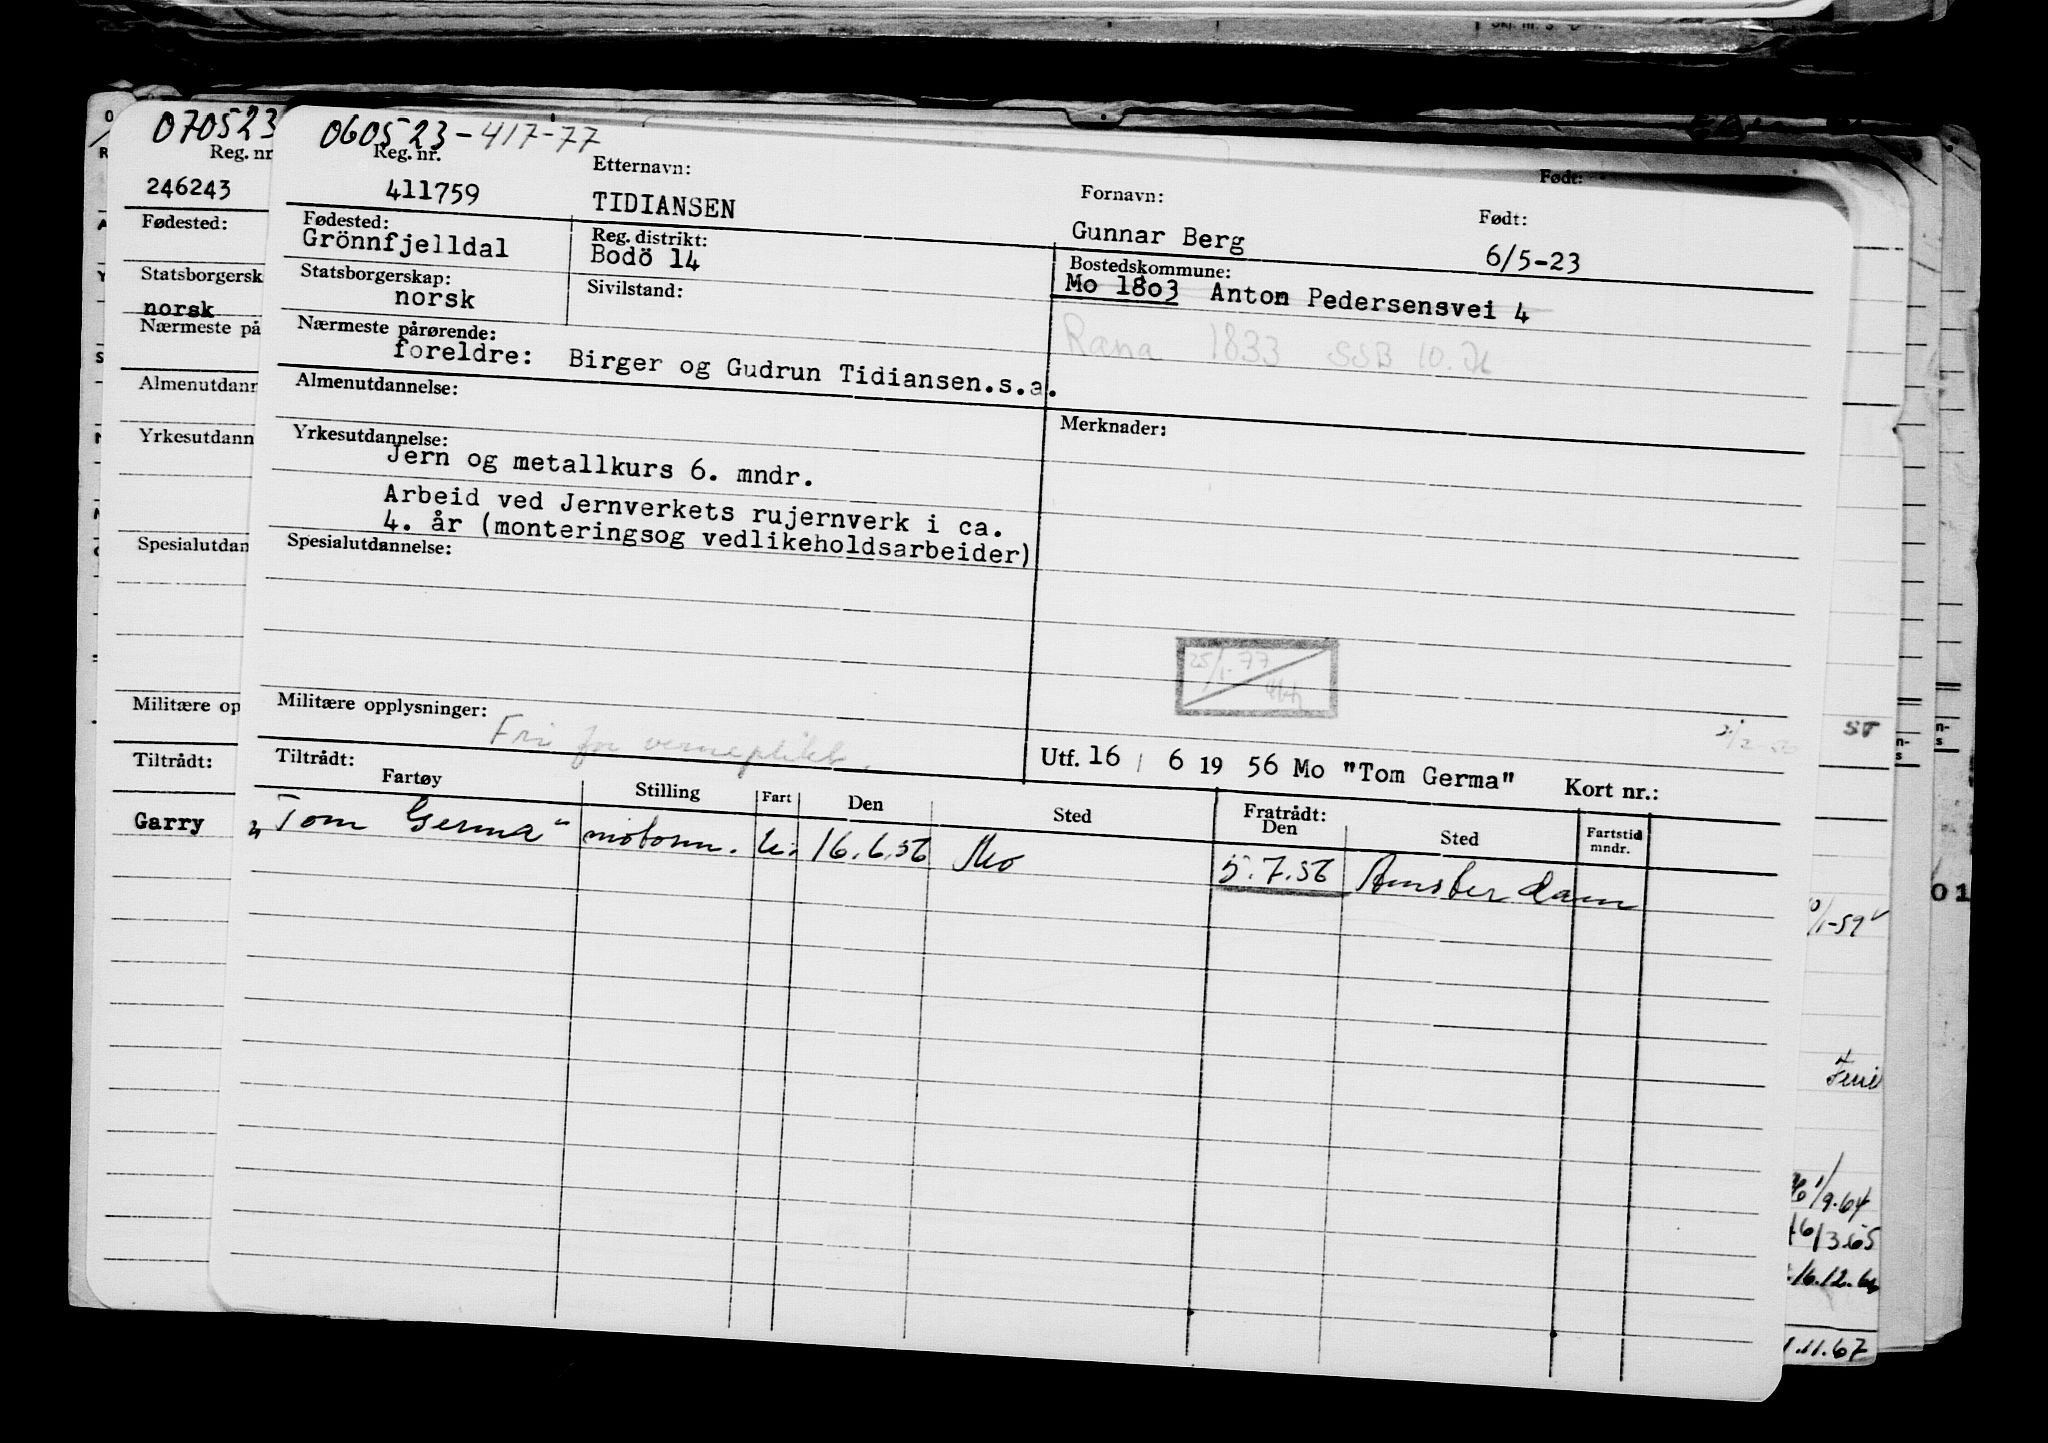 060523-417-77
Reg. nr. Etternavn: Fornavn: Født:
411759 TIDIANSEN Gunnar Berg 6/5-23
Fødested: Reg. distrikt: Bostedskommune:
Grönnfjelldal Bodö 14 Mo 1803 Anton Pedersensvei 4
Statsborgerskap: Sivilstand:
norsk
Rana 1833 SSB 10.
Nærmeste pårørende:
foreldre: Birger og Gudrun Tidiansen.s.a.
Almenutdannelse: Merknader:
Yrkesutdannelse:
Jern og metallkurs 6. mndr.
Arbeid ved Jernverkets rujernverk i ca.
4. år (monteringsog vedlikeholdsarbeider)
Spesialutdannelse:
25/1-77
Militære opplysninger:
Fri for verneplikt.
Utf. 16 / 6 19 56 Mo "Tom Germa" Kort nr.:
Tiltrådt: Fratrådt:
Fartøy Stilling Fart Den Sted Den Sted Fartstid mndr.
"Tom Germa" motorm. u. 16.6.56 Mo 5.7.56 Amsterdam
070523
Reg. nr
246243
Fødested:
Statsborgersk
norsk
Nærmeste på
Almenutdann
Yrkesutdann
Spesialutdan
Militære op
Tiltrådt:
Garry
Født:
ST
01
/1-59
Ferie
1/9.64
16/3.65
16.12.66
.11.67